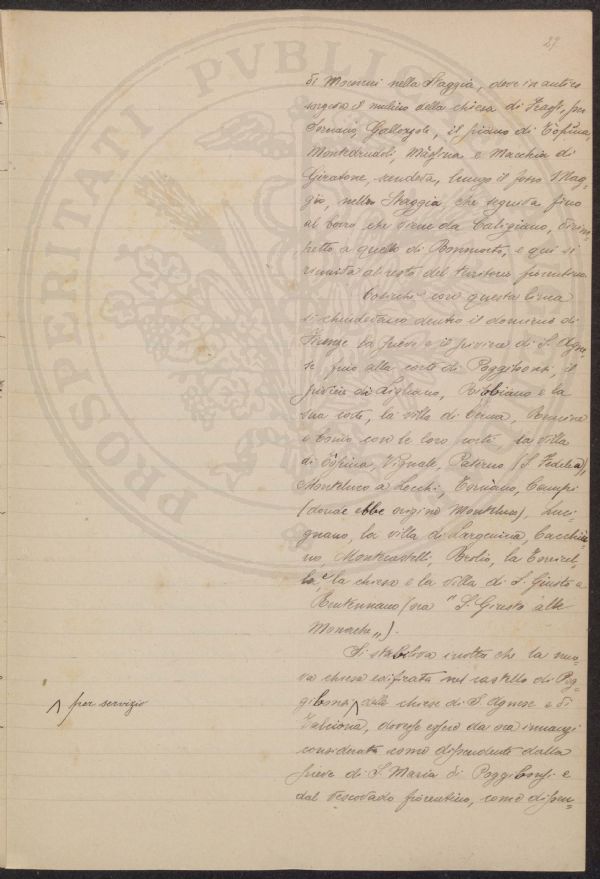 27
PROSPERITATI PVBLICAE
di nella Staggia, dove in antico
sorgeva il mulino della chiesa di per
Tornano, Gallozzole, il piano di Cispina,
Montedrudoli, e Macchia di
Giratone, scendeva, lungo il fosso Mag-
gio, nella Staggia, che seguita fino
al borro che viene da Catignano, dirim-
petto a quello di Bonmorto, e qui si
riuniva al resto del territorio fiorentino.
Cosicchè con questa linea
si chiudevano dentro il dominio di
Firenze la pieve e il piviere di S. Agne-
se, fino alla corte di Poggibonsi, il
piviere di Ligliano, Bibbiano e la
sua corte, la villa di Cerna,
e con le loro corti la villa
di Cispina, Vignale, Paterno (S. Fedele),
Monteluco a Lecchi, Tornano, Campi
(donde ebbe origine Monteluco), Luci-
gnano, la villa di Larginina, Cacchia-
no, Montecastelli, Brolio, la Torricel-
la, e la chiesa e la villa di S. Giusto a
Rentennano (ora "S. Giusto alle
Monache„).
Si stabiliva inoltre che la nuo-
va chiesa edificata nel castello di Pog-
gibonsi ⋀ delle chiese di S. Agnese e di
Talciona, dovesse essere da ora innanzi
considerata come dipendente dalla
pieve di S. Maria di Poggibonsi e
dal Vescovado fiorentino, come dipen-
⋀ per servizio